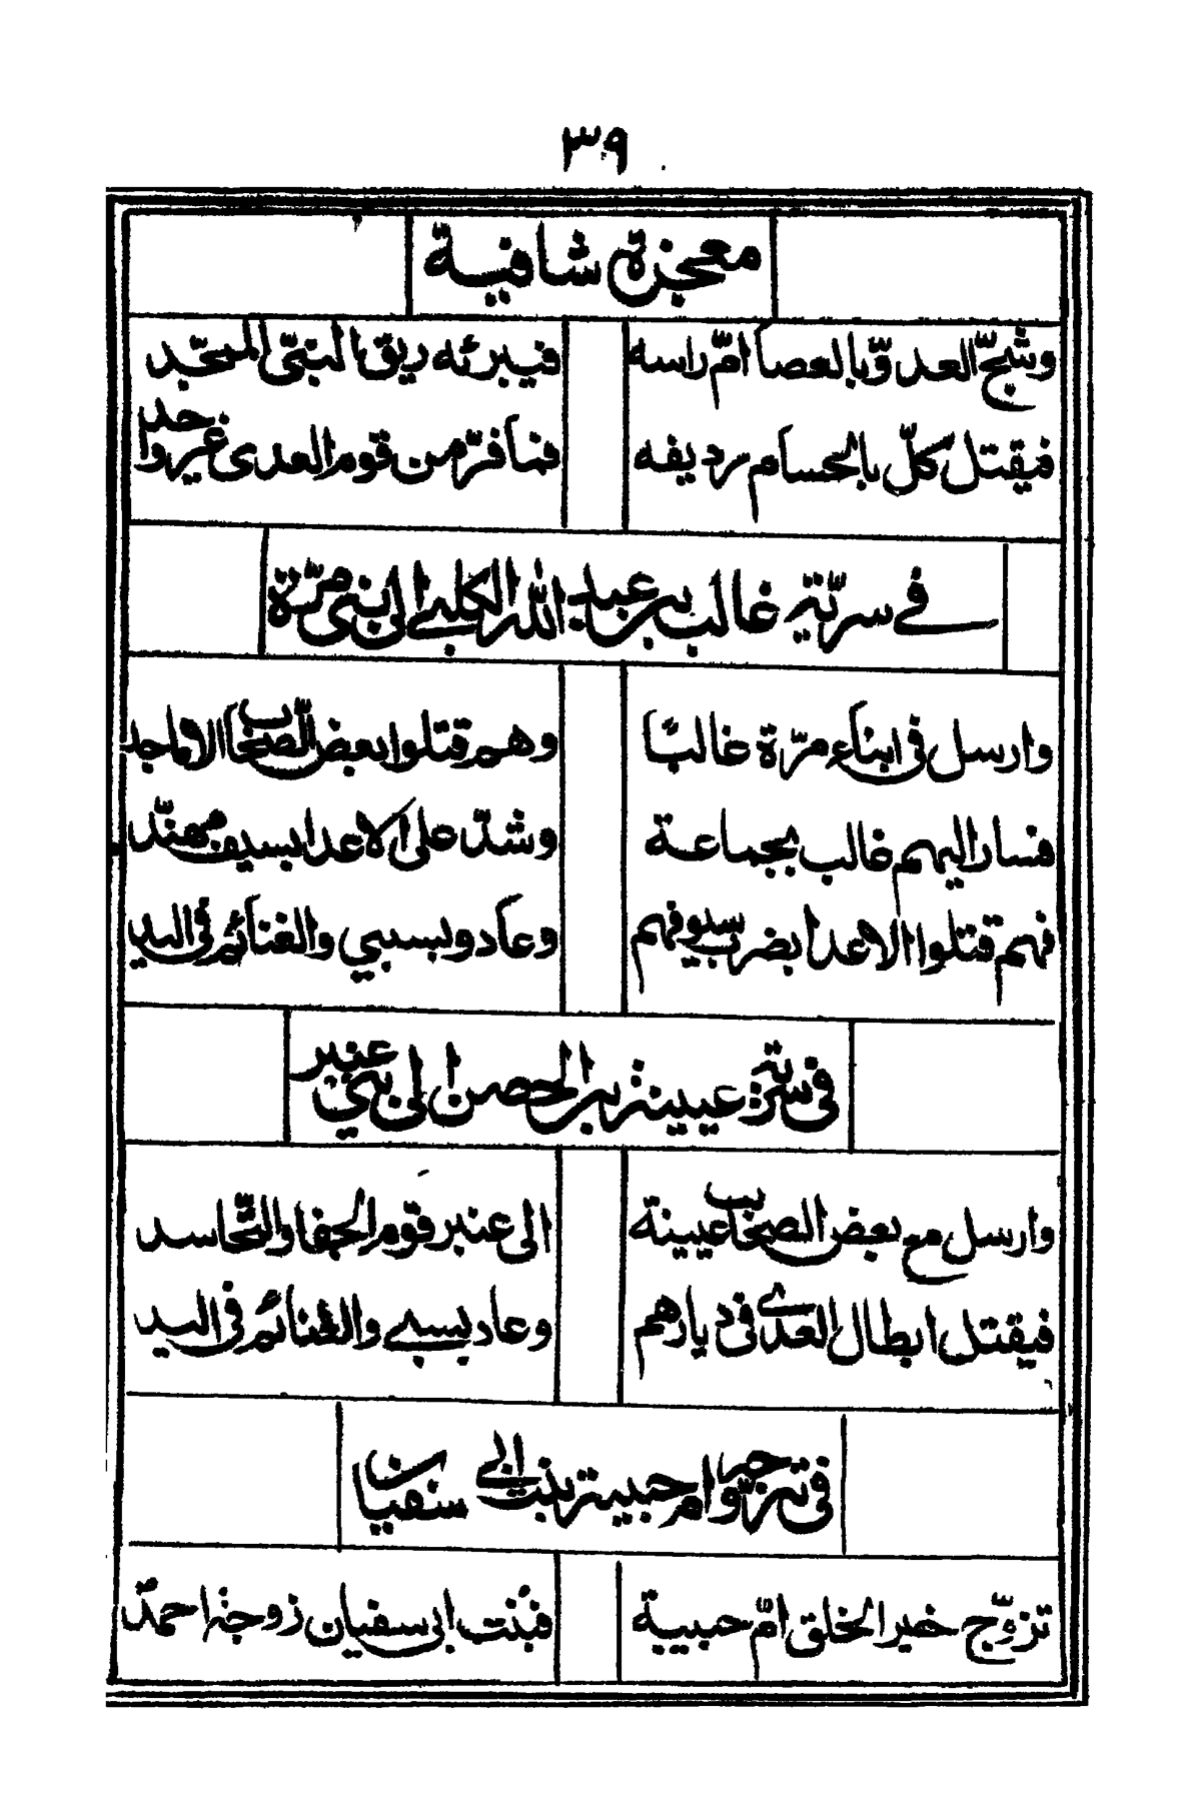 ٣٩
معجزة شافية
وشجّ العدوّ بالعصا امّ راسه فيبرئه ريق النبىّ الممجّد
فيقتل كلّ بالحسام رديفه فما فرّ من قوم العدى غير واحد
فى سريّة غالب بن عبد الله الكلبى الى بنى مرّة
وارسل فى ابناء مرّة غالبًا وهم قتلوا بعض الصّحاب الاماجد
فسار اليهم غالب بجماعة وشدّ على الاعدا بسيف مهنّد
فهم قتلوا الاعدا بضرب سيوفهم وعادو بسبي والغنائم فى اليد
فى سريّة عيينة بن الحصن الى بنى عنبر
وارسل مع بعض الصحاب عيينة الى عنبر قوم الجفا والتّحاسد
فيقتل ابطال العدى فى ديارهم وعاد بسبى والغنائم فى اليد
فى تزوّجه ام حبيبة بنت ابى سفيان
تزوّج خير الخلق امّ حبيبة فبنت ابى سفيان زوجة احمد